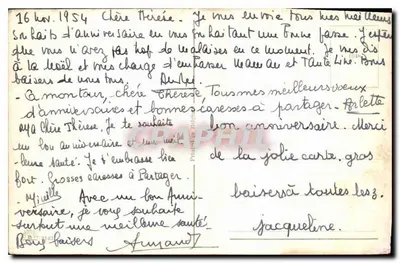 16 nov. 1954 Chère Thérèse. Je vous envoie tous mes meilleurs
souhaits d'anniversaire en vous souhaitant une bonne fête. J'espère
que vous n'avez pas trop de malaises en ce moment. Je vous dis
à la Noël et vous charge d'embrasser Maman et Tante Lini. Bons
baisers de nous tous. André
- A mon tour, chère Thérèse Tous mes meilleurs voeux
d'anniversaires et bonnes caresses à partager - Arlette
Chère Thérèse. Je te souhaite
un bon anniversaire et une meil-
leure santé. Je t'embrasse bien
fort. Grosses caresses à Partager.
Mireille
Avec un bon Anni-
versaire, je vous souhaite
surtout une meilleure santé.
Bons baisers Armand
bon anniversaire. Merci
de la jolie carte, gros
baisers à toutes les 3.
Jacqueline.